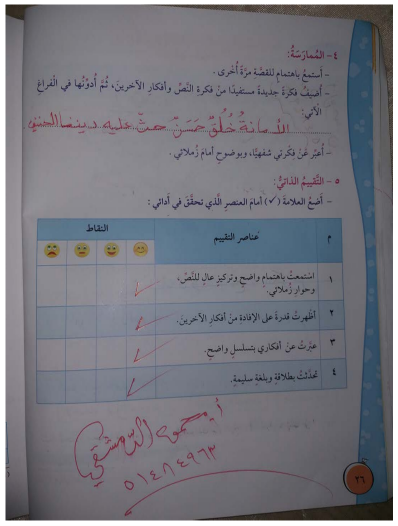 ٤- الممارَسَةُ:
- أستمعُ باهتمامٍ للقصّة مرّةً أُخرى .
- أُضيفُ فكرةً جديدةً مستفيدًا منْ فكرةِ النّصِّ وأفكارِ الآخرينَ، ثمَّ أُدوِّنُها في الفراغِ
الآتي:
الأمانة خُلُقٌ حَسَنٌ حثّ عليه ديننا الحنيف
- أُعبِّرُ عنْ فكرتي شفهيًّا، وبوضوحٍ أمامَ زُملائي .
٥- التَّقييمُ الذّاتيُّ:
- أضعُ العلامةَ (✓) أمامَ العنصرِ الَّذي تحقَّقَ في أدائي :
م عناصر التقييم النقاط
١ استمعتُ باهتمامٍ واضحٍ وتركيزٍ عالٍ للنّصِّ،
وحوارِ زُملائي.
٢ أظهرتُ قدرةً على الإفادةِ منْ أفكارِ الآخرينَ.
٣ عبّرتُ عنْ أفكاري بتسلسلٍ واضحٍ.
٤ تحدّثتُ بطلاقةٍ وبلغةٍ سليمةٍ.
أ. محمود الدمشقي
٥١٤٨٤٩٦٣
٢٦